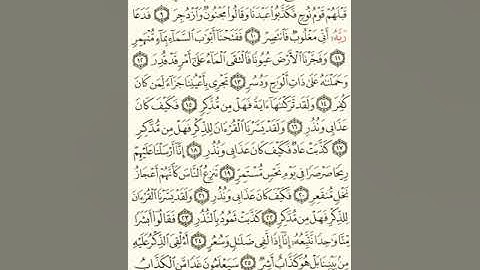 قَبْلَهُمْ قَوْمُ نُوحٍ فَكَذَّبُوا۟ عَبْدَنَا وَقَالُوا۟ مَجْنُونٌ وَٱزْدُجِرَ ۝٩ فَدَعَا
رَبَّهُۥٓ أَنِّى مَغْلُوبٌ فَٱنتَصِرْ ۝١٠ فَفَتَحْنَآ أَبْوَٰبَ ٱلسَّمَآءِ بِمَآءٍ مُّنْهَمِرٍ
۝١١ وَفَجَّرْنَا ٱلْأَرْضَ عُيُونًا فَٱلْتَقَى ٱلْمَآءُ عَلَىٰٓ أَمْرٍ قَدْ قُدِرَ ۝١٢
وَحَمَلْنَٰهُ عَلَىٰ ذَاتِ أَلْوَٰحٍ وَدُسُرٍ ۝١٣ تَجْرِى بِأَعْيُنِنَا جَزَآءً لِّمَن كَانَ
كُفِرَ ۝١٤ وَلَقَد تَّرَكْنَٰهَآ ءَايَةً فَهَلْ مِن مُّدَّكِرٍ ۝١٥ فَكَيْفَ كَانَ
عَذَابِى وَنُذُرِ ۝١٦ وَلَقَدْ يَسَّرْنَا ٱلْقُرْءَانَ لِلذِّكْرِ فَهَلْ مِن مُّدَّكِرٍ
۝١٧ كَذَّبَتْ عَادٌ فَكَيْفَ كَانَ عَذَابِى وَنُذُرِ ۝١٨ إِنَّآ أَرْسَلْنَا عَلَيْهِمْ
رِيحًا صَرْصَرًا فِى يَوْمِ نَحْسٍ مُّسْتَمِرٍّ ۝١٩ تَنزِعُ ٱلنَّاسَ كَأَنَّهُمْ أَعْجَازُ
نَخْلٍ مُّنقَعِرٍ ۝٢٠ فَكَيْفَ كَانَ عَذَابِى وَنُذُرِ ۝٢١ وَلَقَدْ يَسَّرْنَا ٱلْقُرْءَانَ
لِلذِّكْرِ فَهَلْ مِن مُّدَّكِرٍ ۝٢٢ كَذَّبَتْ ثَمُودُ بِٱلنُّذُرِ ۝٢٣ فَقَالُوٓا۟ أَبَشَرًا
مِّنَّا وَٰحِدًا نَّتَّبِعُهُۥٓ إِنَّآ إِذًا لَّفِى ضَلَٰلٍ وَسُعُرٍ ۝٢٤ أَءُلْقِىَ ٱلذِّكْرُ عَلَيْهِ
مِنۢ بَيْنِنَا بَلْ هُوَ كَذَّابٌ أَشِرٌ ۝٢٥ سَيَعْلَمُونَ غَدًا مَّنِ ٱلْكَذَّابُ